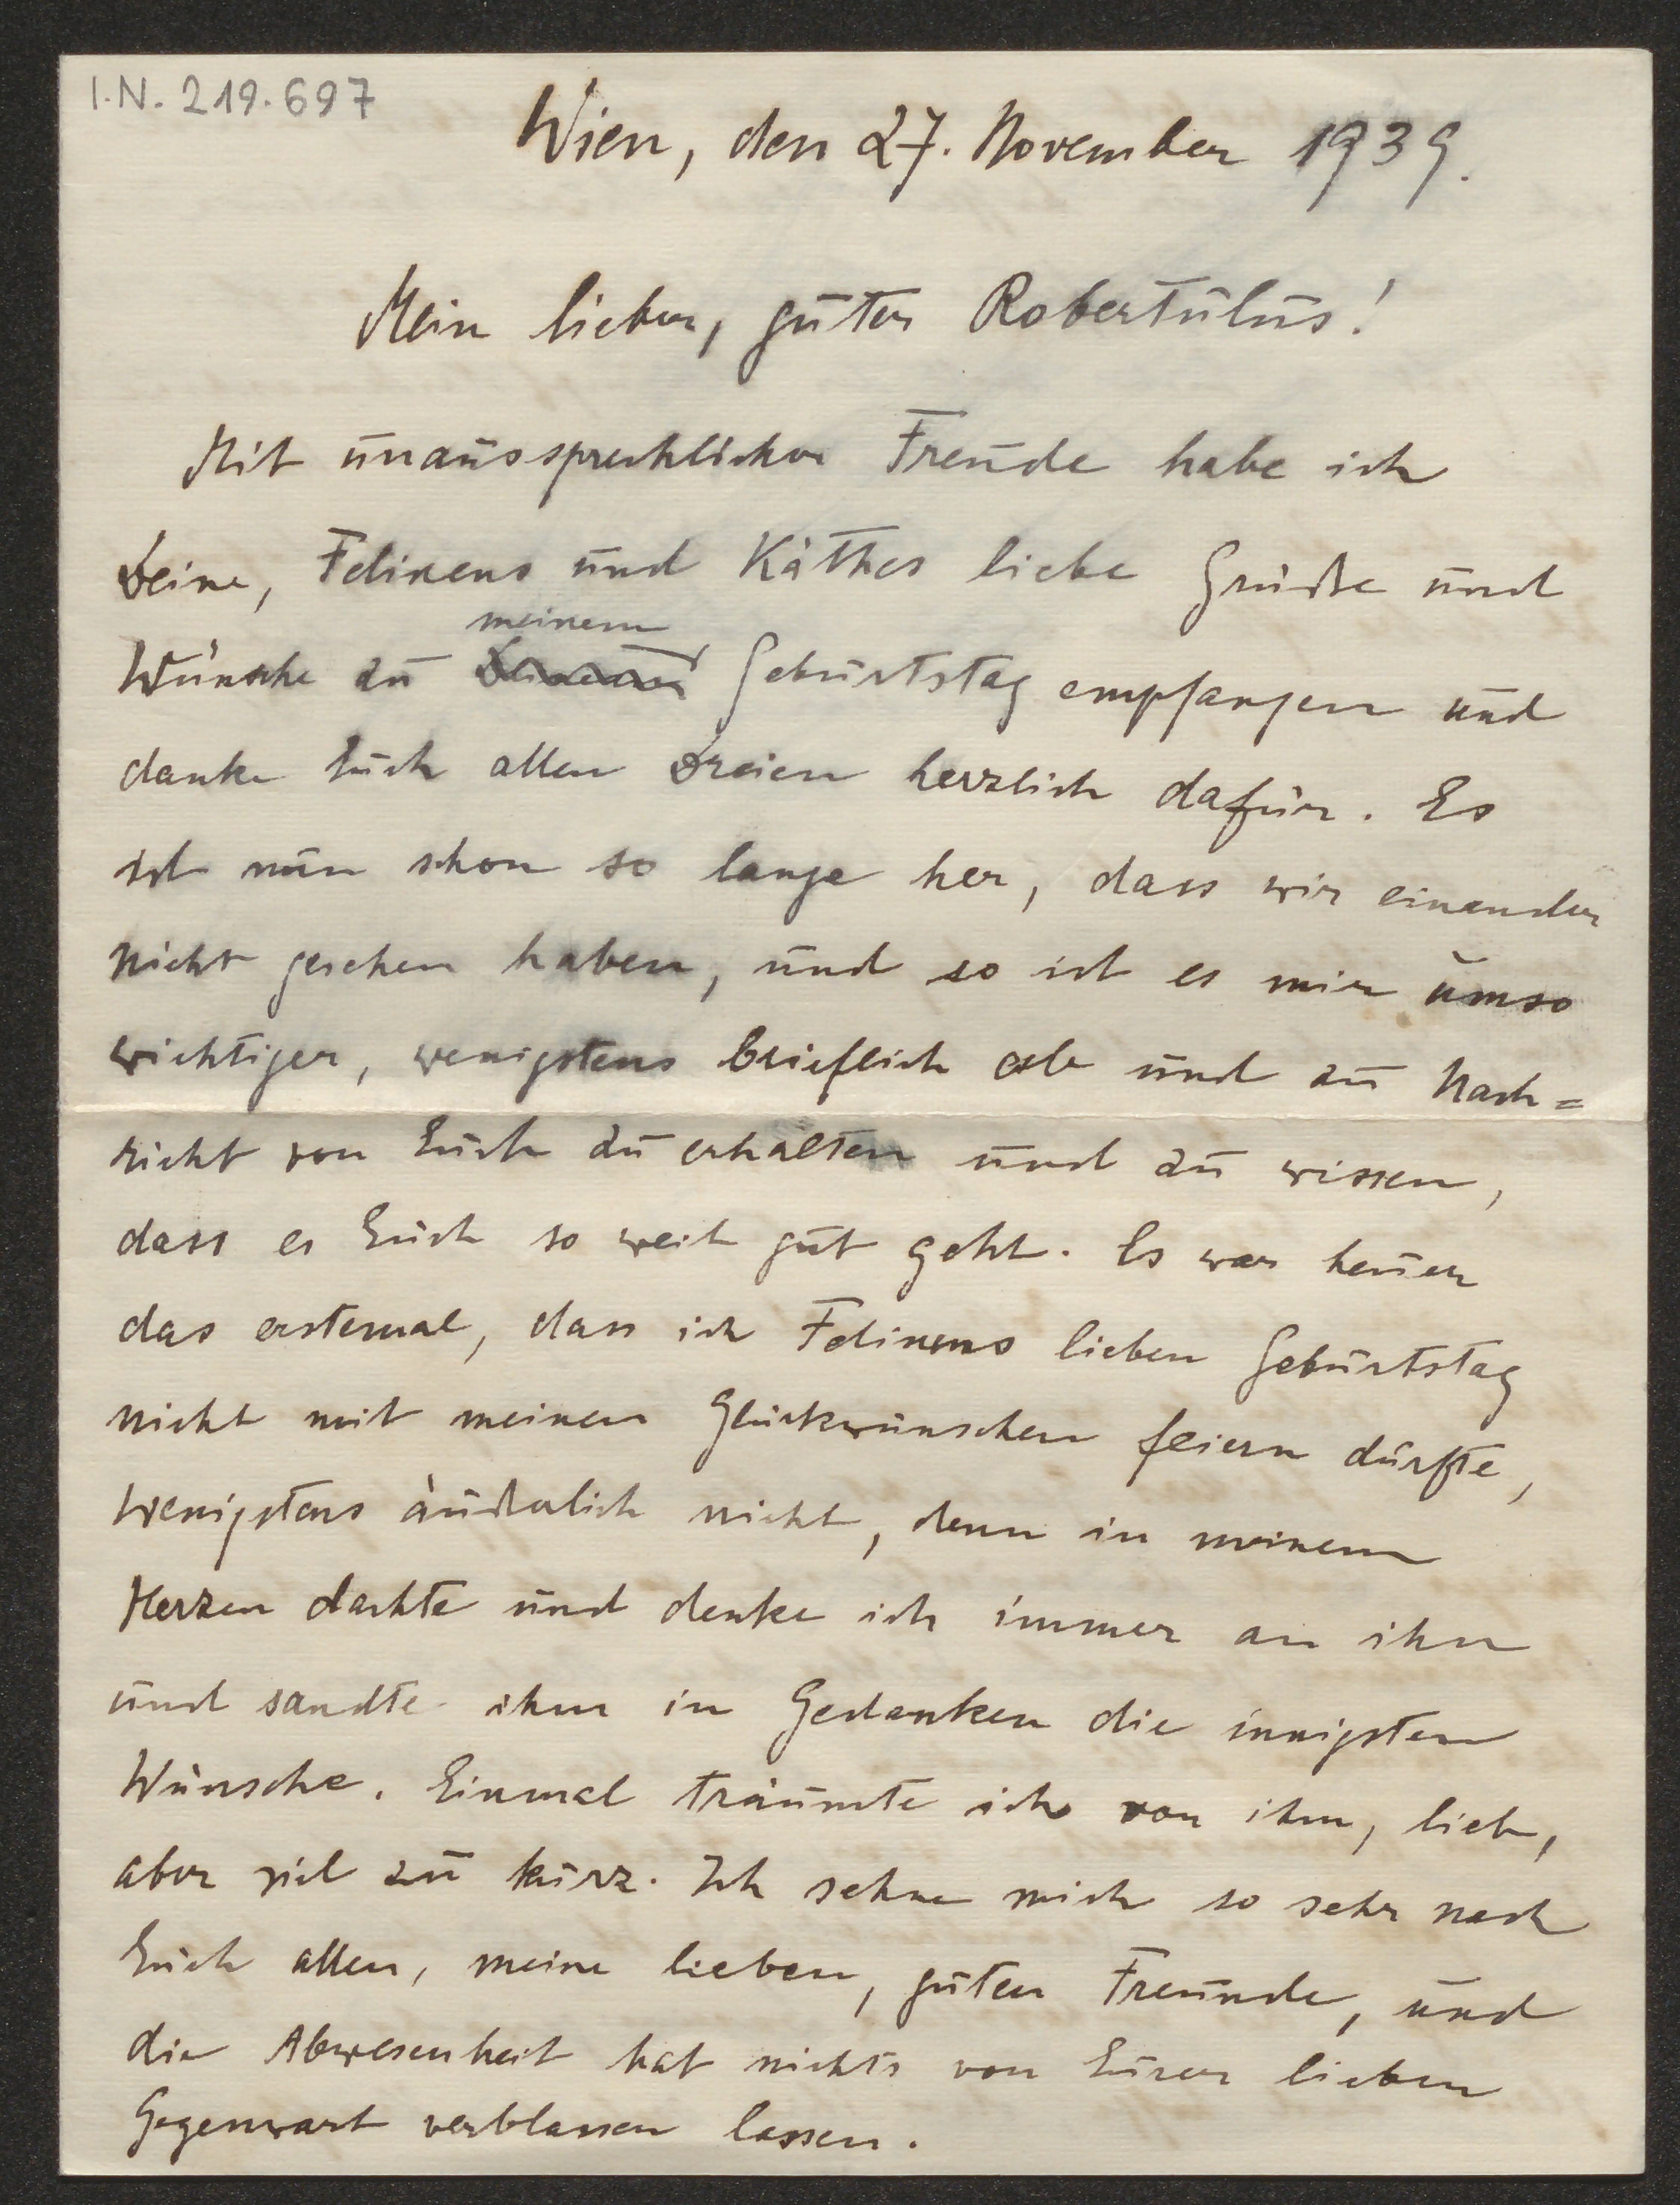 I.N. 219.697
Wien, den 27. November 1939.
Mein lieber, guter Robertulus!
Mit unaussprechlicher Freude habe ich
Deine, Felixens und Käthes liebe Grüße und
meinem
Wünsche zu Geburtstag empfangen und
danke Euch allen Dreien herzlich dafür. Es
ist nun schon so lange her, dass wir einander
nicht gesehen haben, und so ist es mir umso
wichtiger, wenigstens brieflich ab und zu Nach=
richt von Euch zu erhalten und zu wissen,
dass es Euch so weit gut geht. Es war heuer
das erstemal, dass ich Felixens lieben Geburtstag
nicht mit meinen Glückwünschen feiern durfte,
wenigstens äußerlich nicht, denn in meinem
Herzen dachte und denke ich immer an ihn
und sandte ihm in Gedanken die innigsten
Wünsche. Einmal träumte ich von ihm, lieb,
aber viel zu kurz. Ich sehne mich so sehr nach
Euch allen, meine lieben, guten Freunde, und
die Abwesenheit hat nichts von Eurer lieben
Gegenwart verblassen lassen.